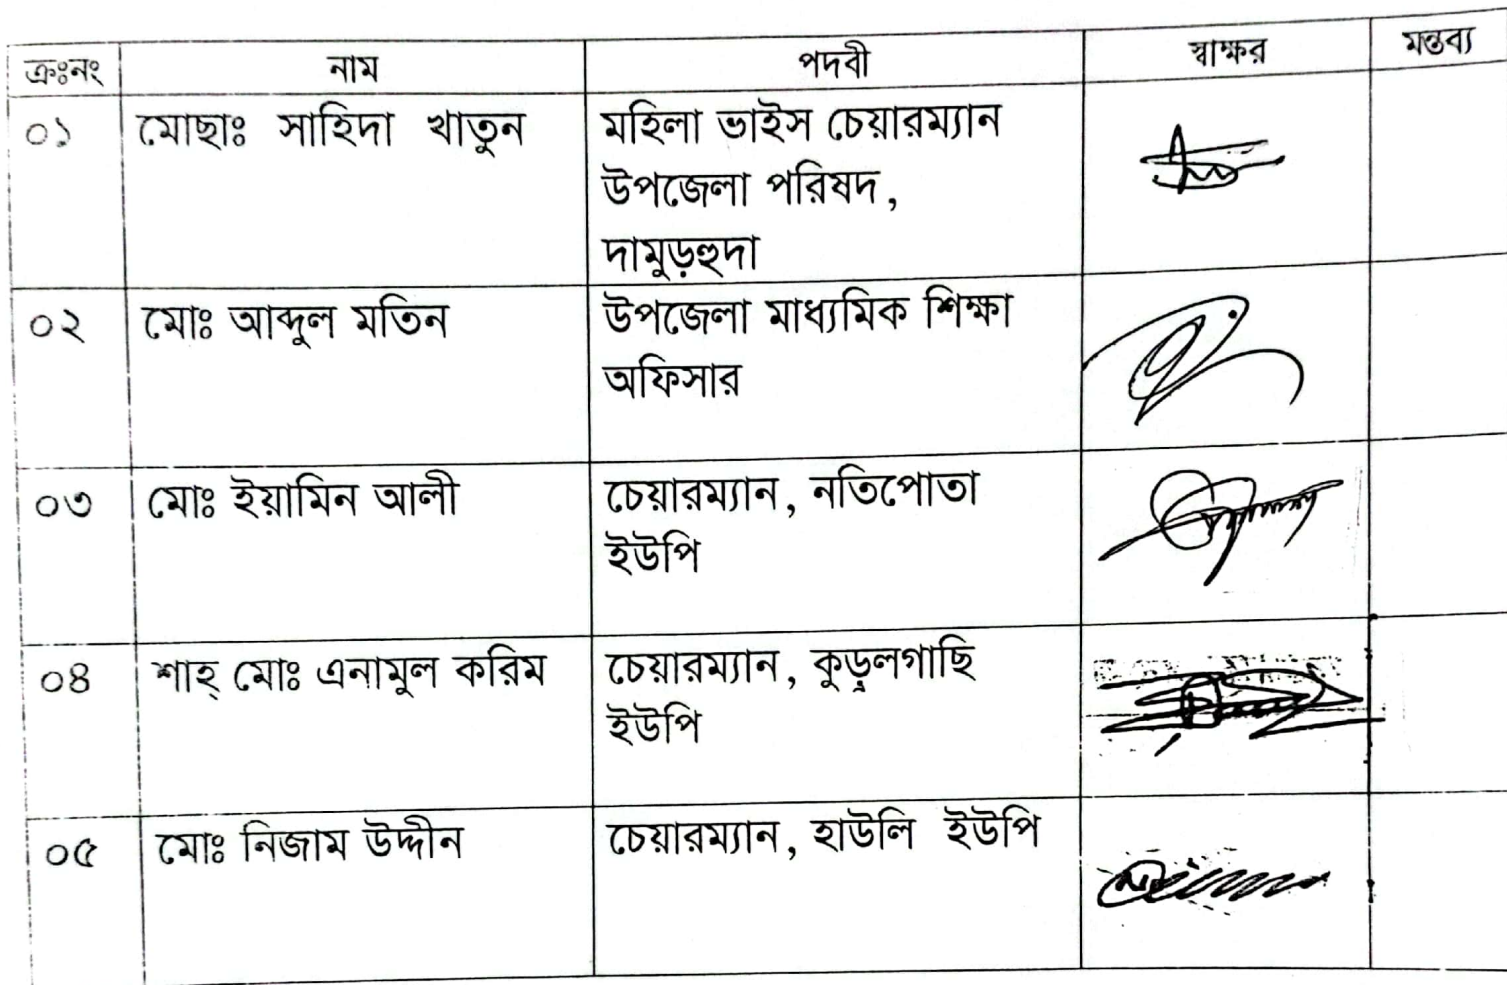 ক্রঃনং নাম পদবী স্বাক্ষর মন্তব্য
০১ মোছাঃ সাহিদা খাতুন মহিলা ভাইস চেয়ারম্যান
উপজেলা পরিষদ,
দামুড়হুদা
০২ মোঃ আব্দুল মতিন উপজেলা মাধ্যমিক শিক্ষা
অফিসার
০৩ মোঃ ইয়ামিন আলী চেয়ারম্যান, নতিপোতা
ইউপি
০৪ শাহ্ মোঃ এনামুল করিম চেয়ারম্যান, কুড়ুলগাছি
ইউপি
০৫ মোঃ নিজাম উদ্দীন চেয়ারম্যান, হাউলি ইউপি